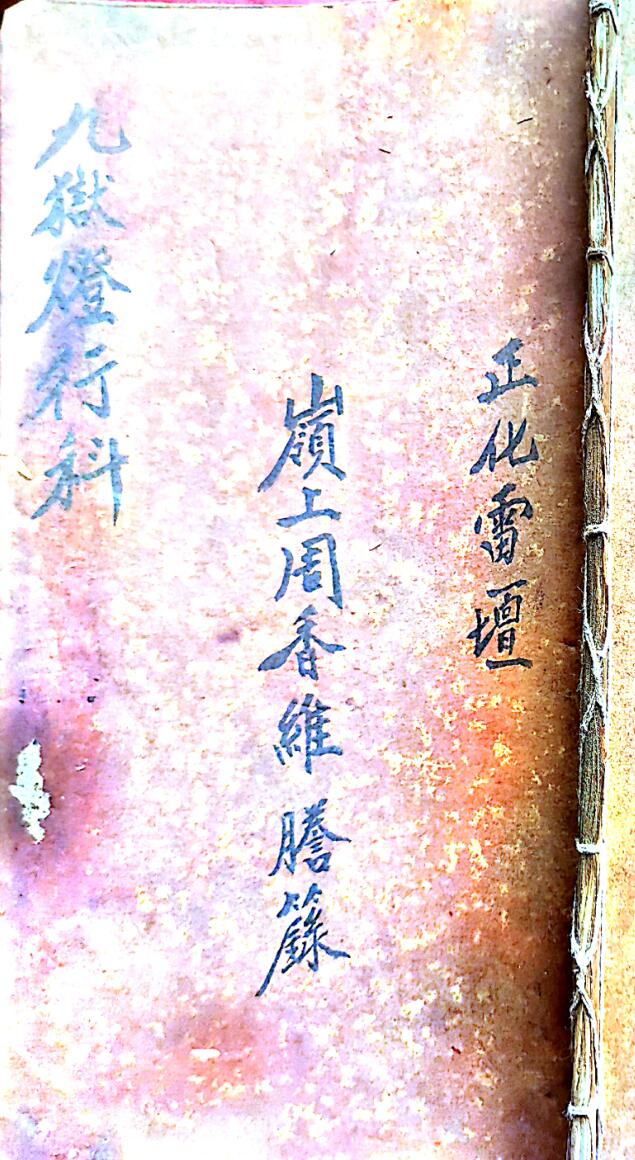 正化雷壇
嶺上周香維謄籙
九獄燈行科